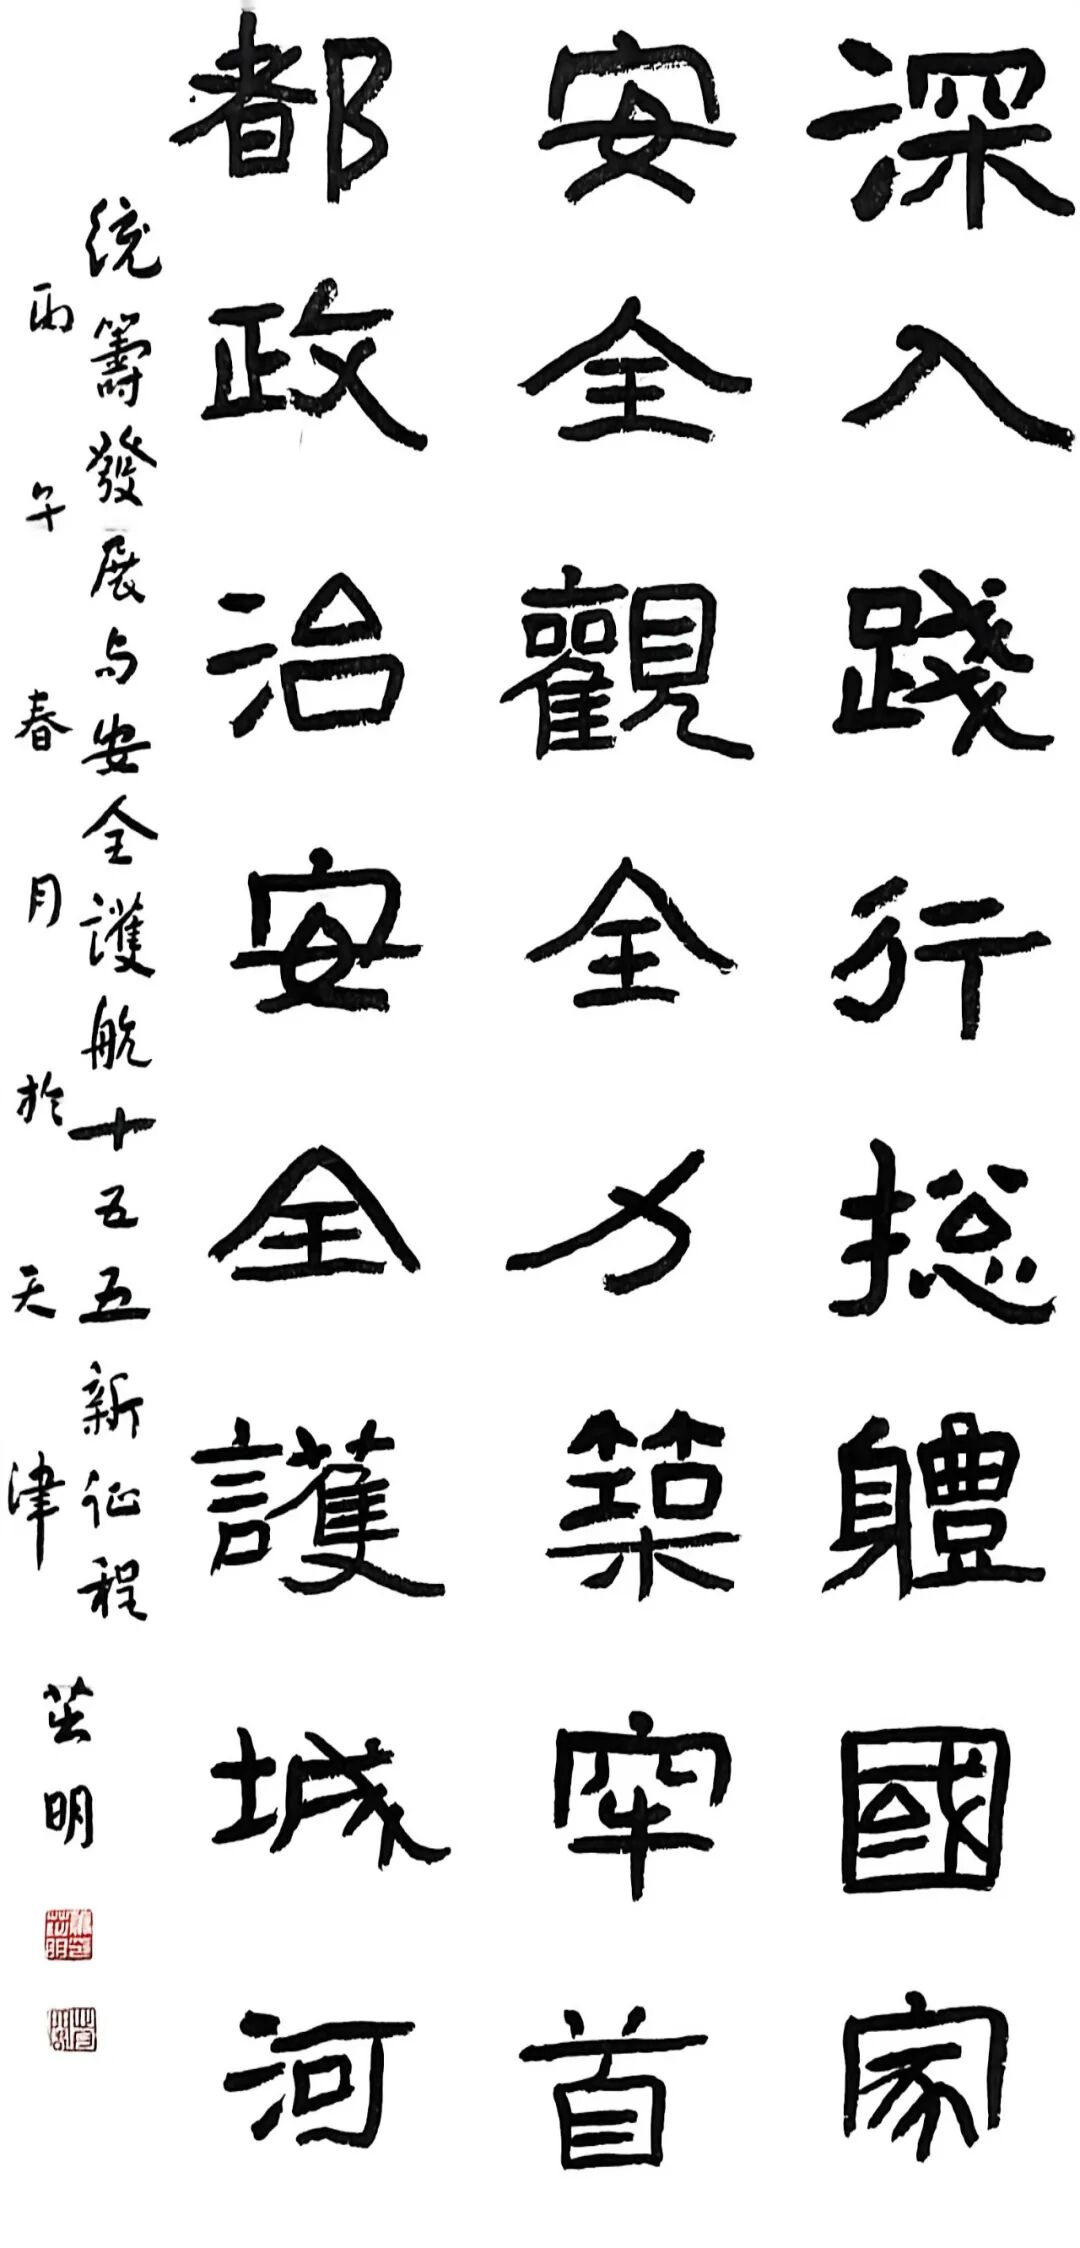 深入踐行捴軆國家
安全觀全力築牢首
都政治安全護城河
統籌發展与安全護航十五五新征程
丙午春月於天津 明